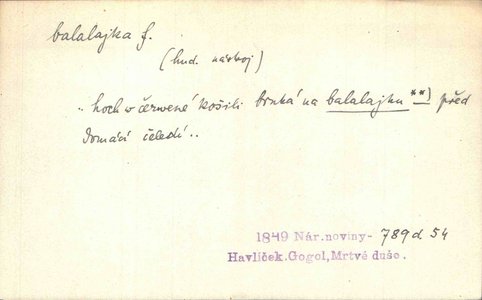 balalajka f.
(hud. nástroj)
.. hoch w čerwené košili brnká na balalajku **) před
domácí čeledí ..
1849 Nár.noviny- 789 d 54
Havlíček.Gogol,Mrtvé duše.